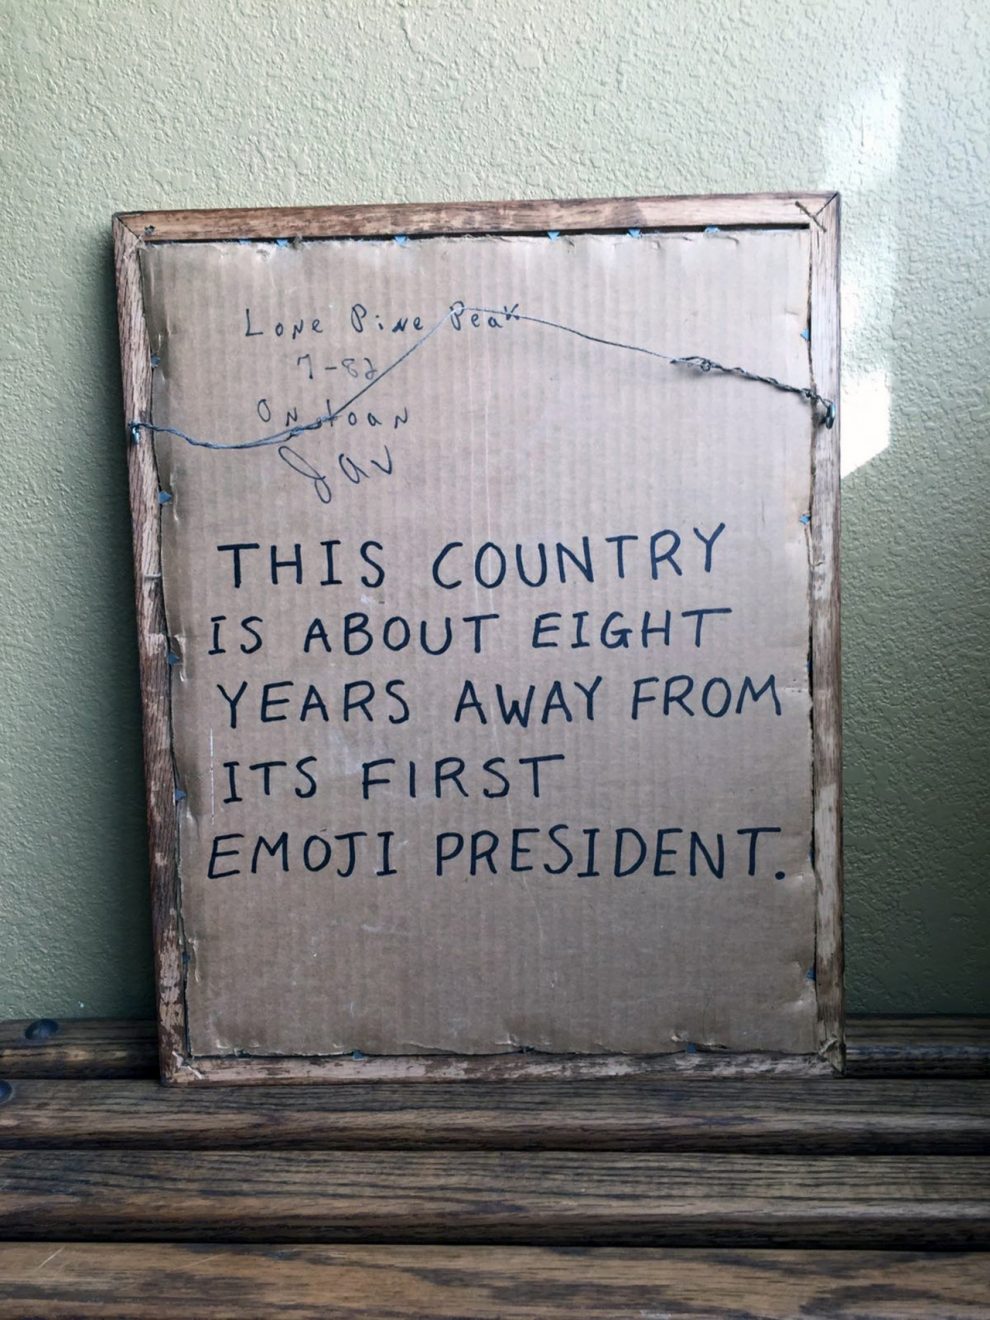 Lone Pine Peak
7-82
On Loan
Jav
THIS COUNTRY
IS ABOUT EIGHT
YEARS AWAY FROM
ITS FIRST
EMOJI PRESIDENT.